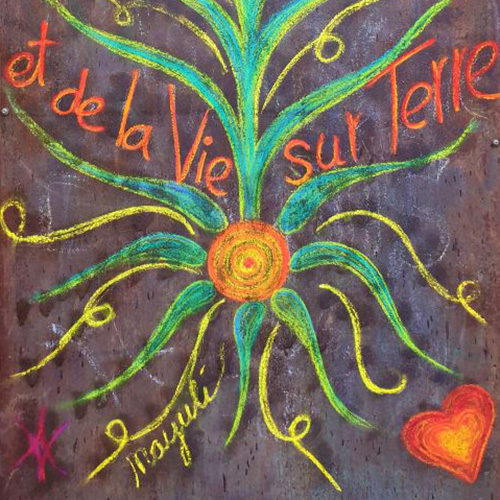 et de la Vie sur Terre
Mayuli